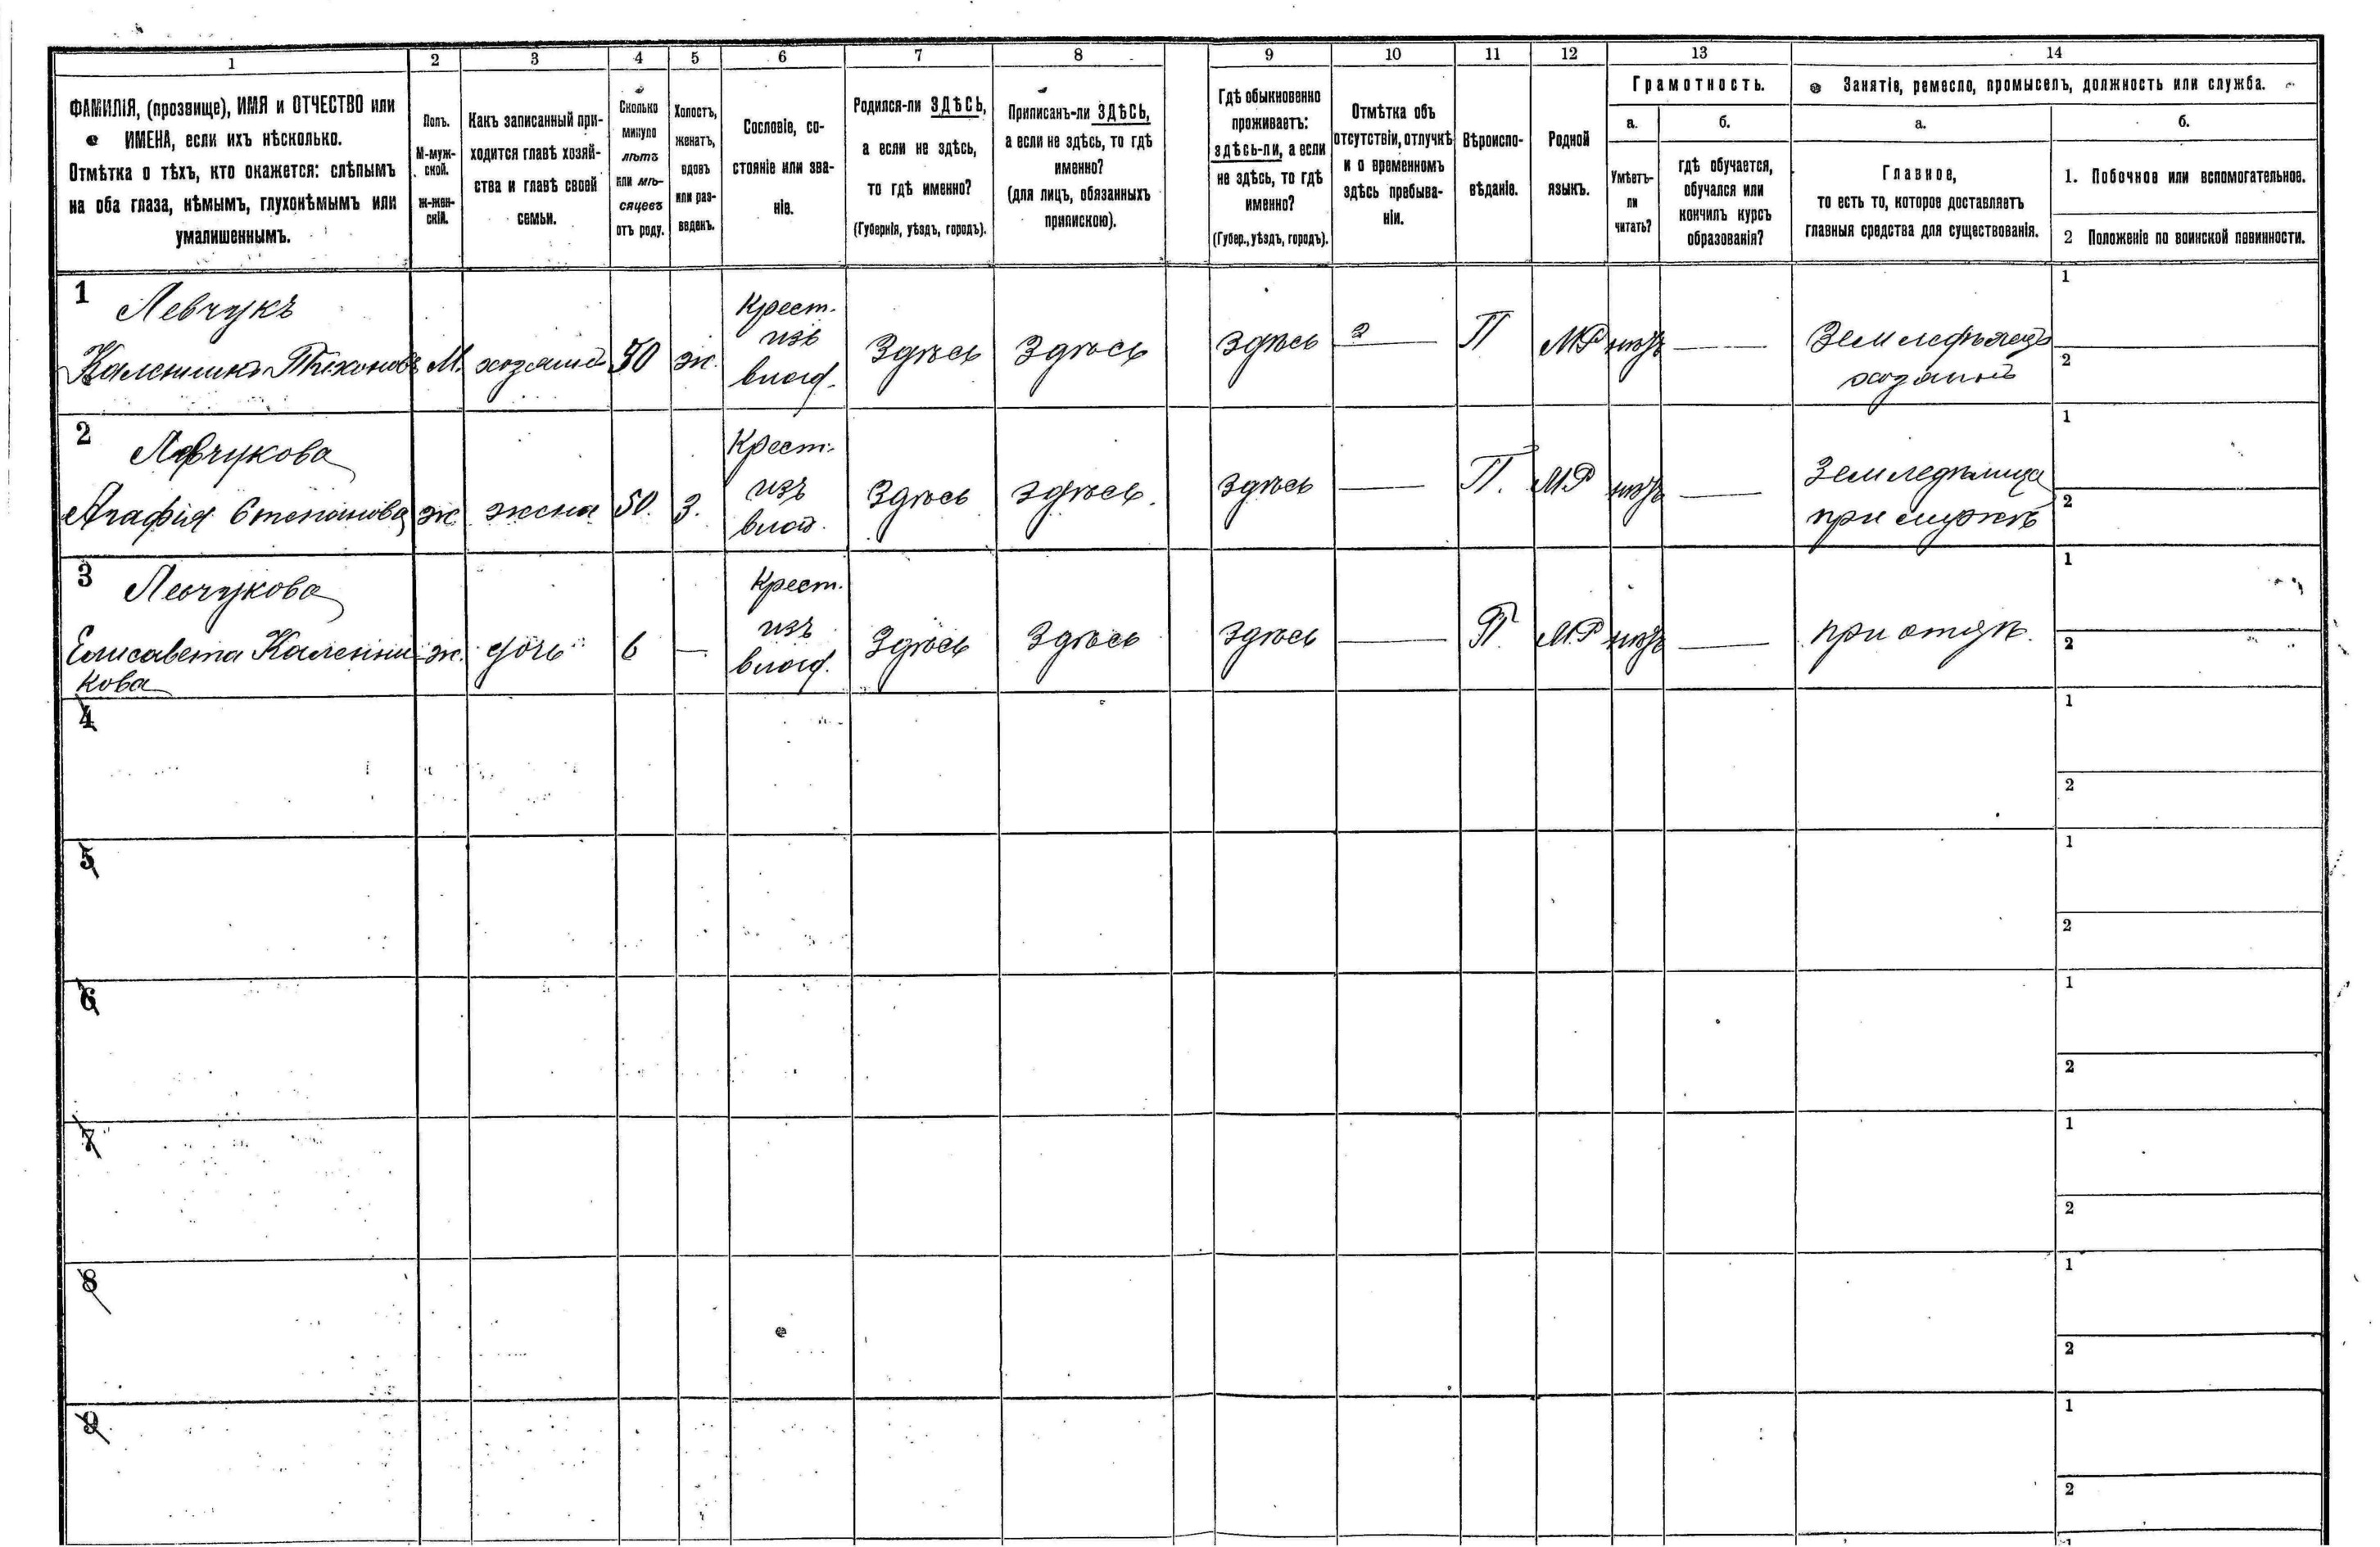 1 2 3 4 5 6 7 8 9 10 11 12 13 14
ФАМИЛІЯ, (прозвище), ИМЯ и ОТЧЕСТВО или
ИМЕНА, если ихъ нѣсколько.
Отмѣтка о тѣхъ, кто окажется: слѣпымъ
на оба глаза, нѣмымъ, глухонѣмымъ или
умалишеннымъ.
Полъ.
М-муж-
ской.
ж-жен-
скій.
Какъ записанный при-
ходится главѣ хозяй-
ства и главѣ своей
семьи.
Сколько
минуло
лѣтъ
или мѣ-
сяцевъ
отъ роду.
Холостъ,
женатъ,
вдовъ
или раз-
веденъ.
Сословіе, со-
стояніе или зва-
ніе.
Родился-ли ЗДѢСЬ,
а если не здѣсь,
то гдѣ именно?
(Губернія, уѣздъ, городъ).
Приписанъ-ли ЗДѢСЬ,
а если не здѣсь, то гдѣ
именно?
(для лицъ, обязанныхъ
припискою).
Гдѣ обыкновенно
проживаетъ:
здѣсь-ли, а если
не здѣсь, то гдѣ
именно?
(Губер., уѣздъ, городъ).
Отмѣтка объ
отсутствіи, отлучкѣ
и о временномъ
здѣсь пребыва-
ніи.
Вѣроиспо-
вѣданіе.
Родной
языкъ.
Грамотность.
а.
Умѣетъ-
ли
читать?
б.
гдѣ обучается,
обучался или
кончилъ курсъ
образованія?
Занятіе, ремесло, промыселъ, должность или служба.
а.
Главное,
то есть то, которое доставляетъ
главныя средства для существованія.
б.
1. Побочное или вспомогательное.
2 Положеніе по воинской повинности.
1
Левчукъ
Тихоновъ
М.
хозяинъ
50
ж.
Крест.
изъ
влад.
Здѣсь
Здѣсь
Здѣсь
2 —
П
МР
—
Земледѣлецъ
хозяинъ
1
2
2
Левчукова
Агафія Степанова
ж.
жена
50.
З.
Крест.
изъ
влад.
Здѣсь
здѣсь.
здѣсь
—
П.
М.Р
—
Земледѣлица
при мужѣ
1
2
3
Левчукова
Елисавета Каленни
кова
ж.
дочь
6
—
Крест.
изъ
влад.
Здѣсь
Здѣсь
Здѣсь
—
П.
М.Р
—
при отцѣ.
1
2
4
1
2
5
1
2
6
1
2
7
1
2
8
1
2
9
1
2